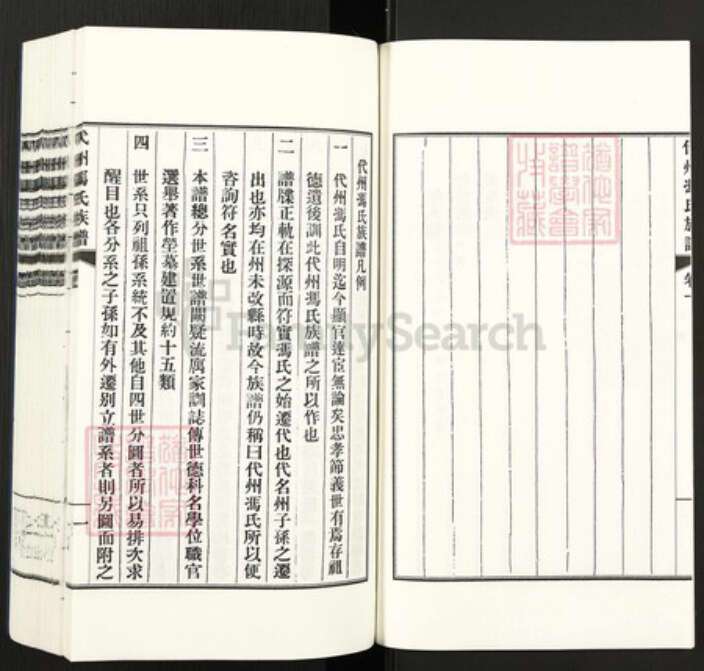 代州馮氏族譜 卷一
代州馮氏族譜凡例
一 代州馮氏自明迄今顯官達宦無論矣忠孝節義世有焉存祖
德遺後訓此代州馮氏族譜之所以作也
二 譜牒正軌在探源而符實馮氏之始遷代也代名州子孫之遷
出也亦均在州未改縣時故今族譜仍稱曰代州馮氏所以便
咨詢符名實也
三 本譜總分世系世譜闕疑流寓家訓誌傳世德科名學位職官
選舉著作塋墓建置規約十五類
四 世系只列祖孫系統不及其他自四世分圖者所以易排次求
醒目也各分系之子孫如有外遷別立譜系者則另圖而附之
代州馮氏族譜
一
FamilySearch